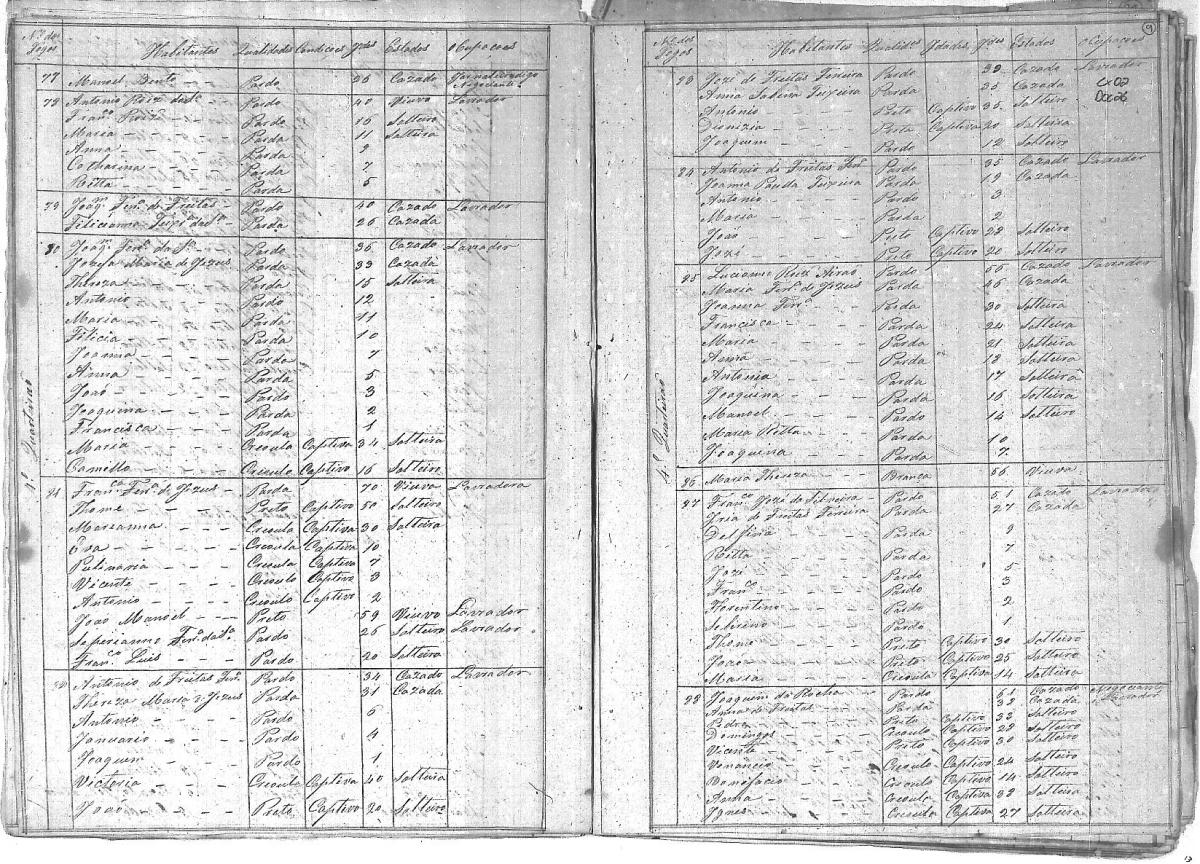 Nº dos Fogos Habitantes Qualidades Condiçoes Idas Estados Ocupaçoes
77 Manoel Bento Pardo 26 Cazado
Negociante
78 Antonio Roiz da Sª Pardo 40 Viuvo Lavrador
Franco Roiz Pardo 16 Solteiro
Maria Parda 11 Solteira
Anna Parda 9
Catharina Parda 7
Ritta Parda 5
79 Joaqm Ferª de Freitas Pardo 40 Cazado Lavrador
Felicianna Teixrª da Sª Parda 26 Cazada
80 Joaqm Ferª da Sª Pardo 36 Cazado Lavrador
Jozefa Maria de Jezus Parda 33 Cazada
Thereza Parda 15 Solteira
Antonio Pardo 12
Maria Parda 11
Felicia Parda 10
Joanna Parda 7
Anna Parda 5
João Pardo 3
Joaquina Parda 2
Francisca Parda 1
Maria Creoula Captiva 34 Solteira
Camillo Creoulo Captivo 16 Solteiro
4º Quarteirão
81 Franca Ferª de Jezus Parda 70 Viuva Lavradora
Thome Preto Captivo 50 Solteiro
Marianna Creoula Captiva 30 Solteira
Eva Creoula Captiva 10
Creoula Captiva 7
Vicente Creoulo Captivo 3
Antonio Creoulo Captivo 2
João Manoel Preto 59 Viuvo Lavrador
Pardo 26 Solteiro Lavrador
Franco Luis Pardo 20 Solteiro
82 Antonio de Freitas Ferª Pardo 34 Cazado Lavrador
Thereza Maria de Jezus Parda 31 Cazada
Antonio Pardo 6
Januario Pardo 4
Joaquim Pardo 1
Victoria Creoula Captiva 40 Solteira
João Preto Captivo 20 Solteiro
9
Nº dos Fogos Habitantes Qualides Idas Estados Ocupaçoes
83 Jozé de Freitas Pereira Pardo 39 Cazado Lavrador
Anna Sabina Teixeira Parda 35 Cazada
Antonio Preto Captivo 35 Solteiro
Dionizia Preta Captiva 20 Solteira
Joaquim Pardo 12 Solteiro
84 Antonio de Freitas Ferª Pardo 35 Cazado Lavrador
Joanna Teixeira Parda 19 Cazada
Antonio Pardo 3
Maria Parda 2
João Preto Captivo 22 Solteiro
Jozé Preto Captivo 20 Solteiro
85 Lucianno Roiz Pardo 56 Cazado Lavrador
Maria Ferª de Jezus Parda 46 Cazada
Joanna Ferª Parda 30 Solteira
Francisca Parda 24 Solteira
Maria Parda 21 Solteira
Anna Parda 18 Solteira
Antonia Parda 17 Solteira
Joaquina Parda 16 Solteira
Manoel Pardo 14 Solteiro
Maria Ritta Parda 10
Joaquina Parda 7
4º Quarteirão
86 Maria Thereza Branca 56 Viuva
87 Franco Jozé da Silveira Pardo 51 Cazado Lavrador
de Freitas Pereira Parda 27 Cazada
Delfina Parda 9
Ritta Parda 7
Jozé Pardo 5
Franco Pardo 3
Florentino Pardo 2
Pardo 1
Thome Preto Captivo 30 Solteiro
João Preto Captivo 25 Solteiro
Maria Creoula Captiva 14 Solteira
88 Joaquim da Rocha Pardo 61 Cazado Negociante
Anna de Freitas Parda 38 Cazada Lavrador
Pedro Preto Captivo 33 Solteiro
Domingos Creoulo Captivo 28 Solteiro
Vicente Preto Captivo 30 Solteiro
Venancio Creoulo Captivo 24 Solteiro
Bonifacio Creoulo Captivo 14 Solteiro
Anna Creoula Captiva 32 Solteira
Ignes Creoula Captiva 27 Solteira